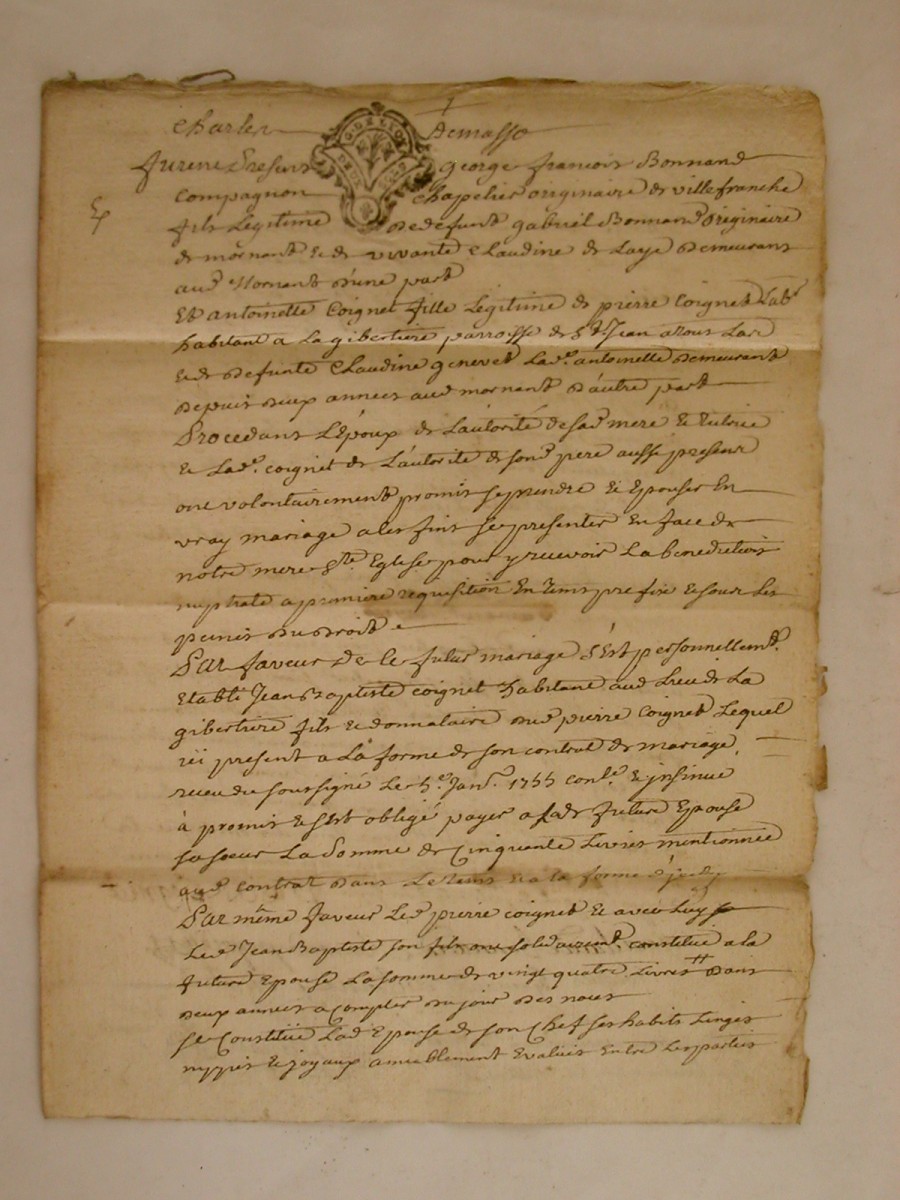 Charles Demasso
G. DE LYON
DEUX SOLS
Furent Presents george francois Bonnand
Compagnon chapelier originaire de villefranche
fils Legitime de defunt gabriel Bonnand originaire
de mornant & de vivante Claudine de Laye Demeurant
aud Mornant D'une part
Et antoinette Coignet fille Legitime de pierre Coignet Lab.r
habitant a La gibertiere parroisse de St Jean
& de Defunte Claudine genevet Lad.e antoinette Demeurant
Depuis deux années aud mornant D'autre part
Procedant L'Epoux de L'autorité de sad mere & tutrice
& Lad.e coignet de L'autorité de sond pere aussi present
ont volontairement promis se prendre & Epouser En
vray mariage a ces fins se presenter En face de
notre mere Ste Eglise pour y recevoir La benediction
nuptiale a premiere requisition En tems prefix & sous Les
peines du droit
En faveur de ce futur mariage s'Est personnellemt.
Etabli Jean Baptiste coignet habitant aud Lieu de La
gibertiere fils & donnataire dud pierre Coignet Lequel
ici present a La forme de son contrat de mariage
receu du soussigné Le 5e Janr. 1755 conle & insinué
à promis & s'Est obligé payer a lad future Epouse
sa soeur La Somme de Cinquante Livres mentionnée
aud contrat Dans Le tems & a la forme
Par même faveur Led pierre coignet & avec Luy
Led Jean Baptiste son fils ont solidairemt. constitué a la
future Epouse La somme de vingt quatre Livres # Dans
deux années a compter du jour des nous
se Constitüe Lad Epouse de son Chef ses habits Linges
nippes & joyaux amiablement Evalués Entre Les parties